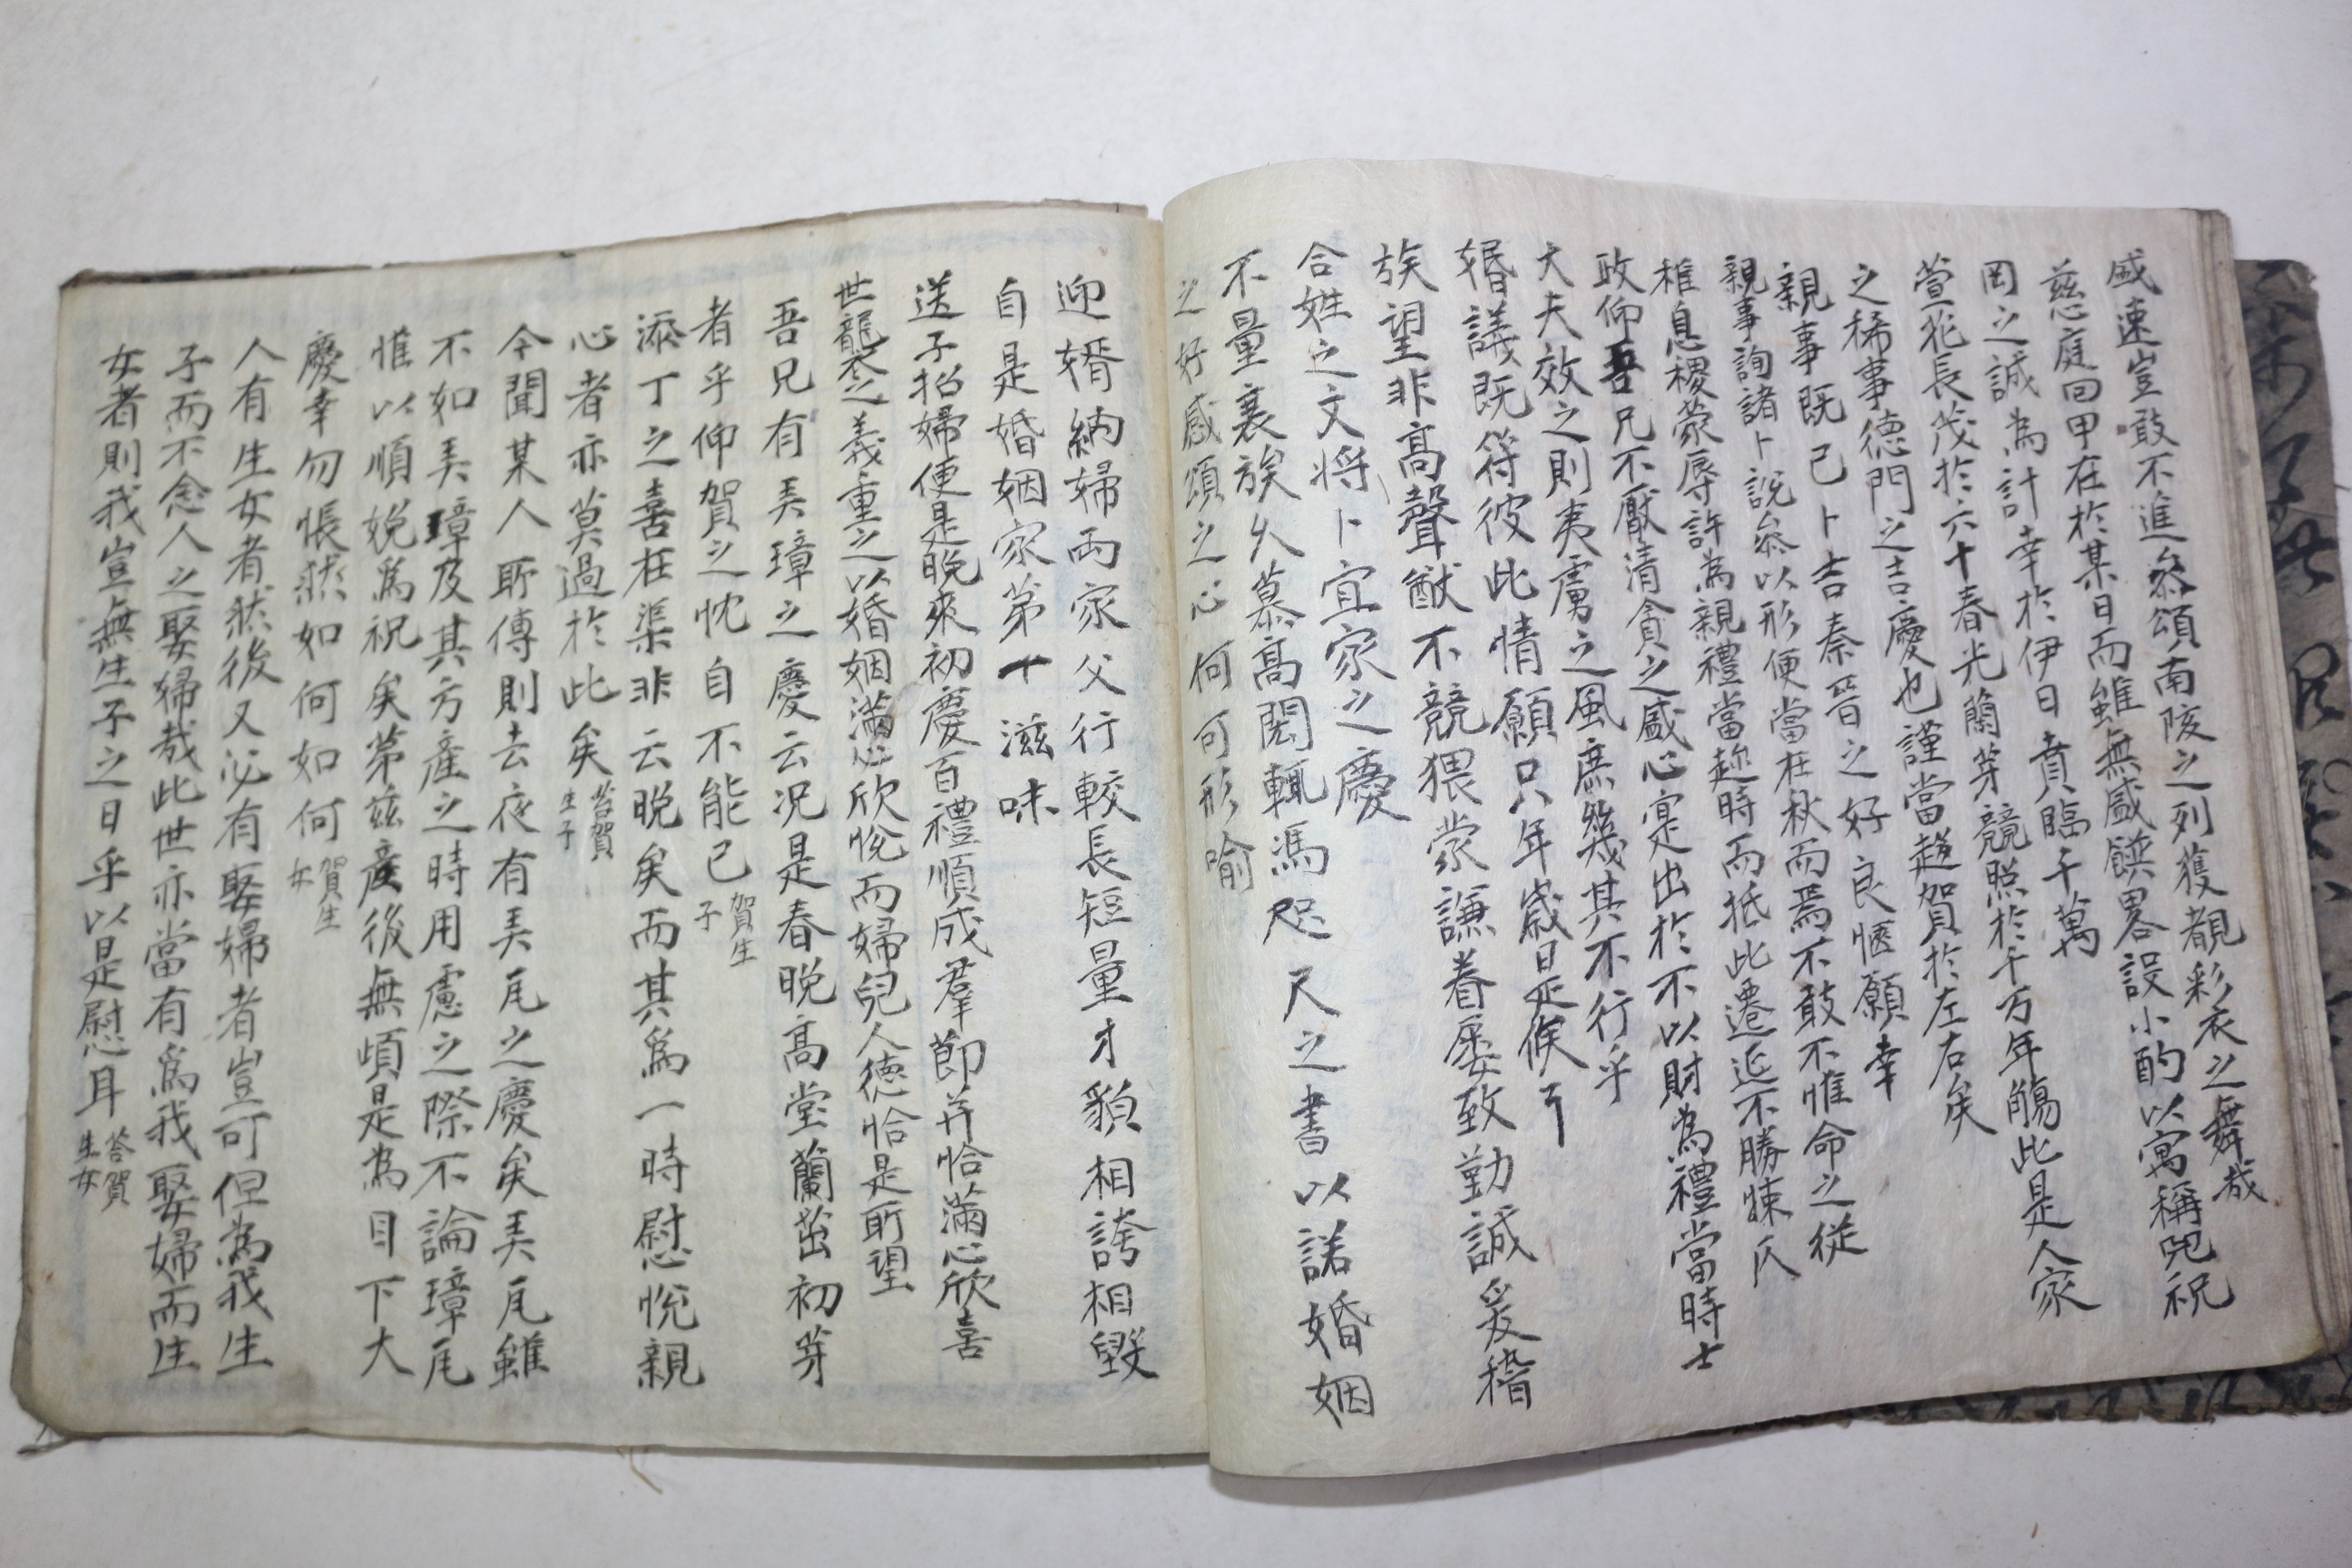 盛速豈敢不進叅頌南陔之列獲覩彩衣之舞哉
慈庭回甲在於某日而雖無盛饌畧設小酌以寓稱兕祝
岡之誠為計幸於伊日賁臨千萬
萱花長茂於六十春光蘭芽競照於千万年觴此是人家
之稀事德門之吉慶也謹當趍賀於左右矣
親事既已卜吉秦晉之好良愜願幸
親事詢諸卜說叅以形便當在秋而焉不敢不惟命之從
稚息稷蒙辱許為親禮當趂時而抵此遷延不勝悚仄
政仰吾兄不厭清貪之盛心寔出於不以財為禮當時士
大夫效之則夷虜之風庶幾其不行乎
婚議既符彼此情願只年歲日是俟耳
族望非高聲猷不競猥蒙謙眷屡致勤誠爰稽
合姓之文将卜宜家之慶
不量衰族久慕高閎輒馮咫尺之書以諾婚姻
之好感頌之心何可形喻
迎婿納婦両家父行較長短量才貌相誇相毀
自是婚姻家第十滋味
送子招婦便是晚來初慶百禮順成羣節并恰滿心欣喜
世龍之義重之以婚姻滿心欣悅而婦兒人德恰是所望
吾兄有弄璋之慶云况是春晚高堂蘭茁初芽
者乎仰賀之忱自不能已賀生子
添丁之喜在渠非云晚矣而其為一時慰悅親
心者亦莫過於此矣荅賀生子
今聞某人所傳則去夜有弄瓦之慶矣弄瓦雖
不如弄璋及其方産之時用慮之際不論璋瓦
惟以順娩為祝矣第玆産後無頉是為目下大
慶幸勿悵然如何如何賀生女
人有生女者然後又必有娶婦者豈可但為我生
子而不念人之娶婦哉此世亦當有為我娶婦而生
女者則我豈無生子之日乎以是慰耳荅賀生女